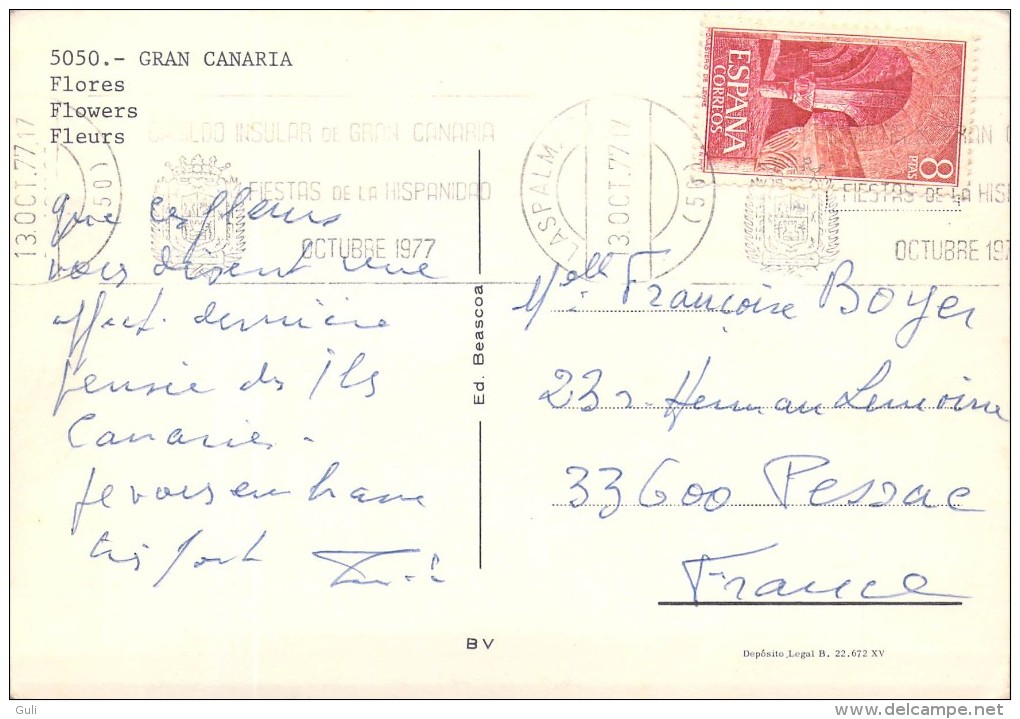 5050.- GRAN CANARIA
Flores
Flowers
Fleurs
CABILDO INSULAR DE GRAN CANARIA
FIESTAS DE LA HISPANIDAD
OCTUBRE 1977
13.OCT.77.17
(50)
LASPALM
13.OCT.77.17
(50)
FIESTAS DE LA HIS
OCTUBRE 197
ESPAÑA
CORREOS
8 PTAS
que ces fleurs
vous disent une
affect. dernière
pensée des Iles
Canaries.
Je vous embrasse
très fort
Ed. Beascoa
Melle Françoise BOYER
23 r. Herman Lemoine
33600 Pessac
France
BV
Depósito Legal B. 22.672 XV
Guli
www.delcampe.net